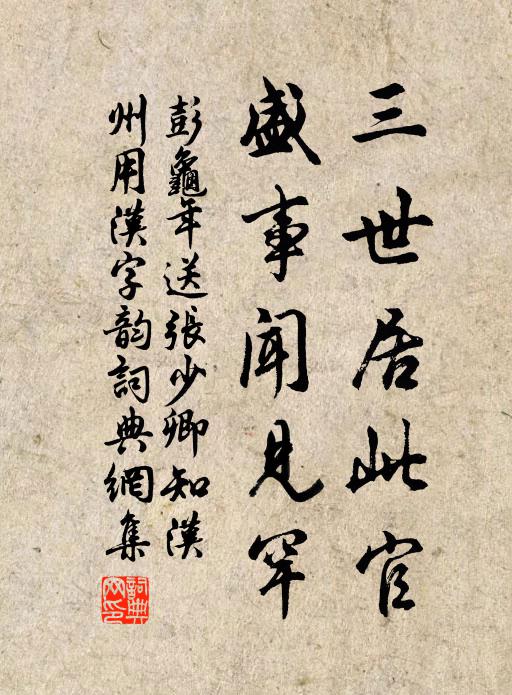 三世居此官
盛事聞見罕
彭龜年送張少卿知漢
州用漢字韵詞典網集
詞典網印